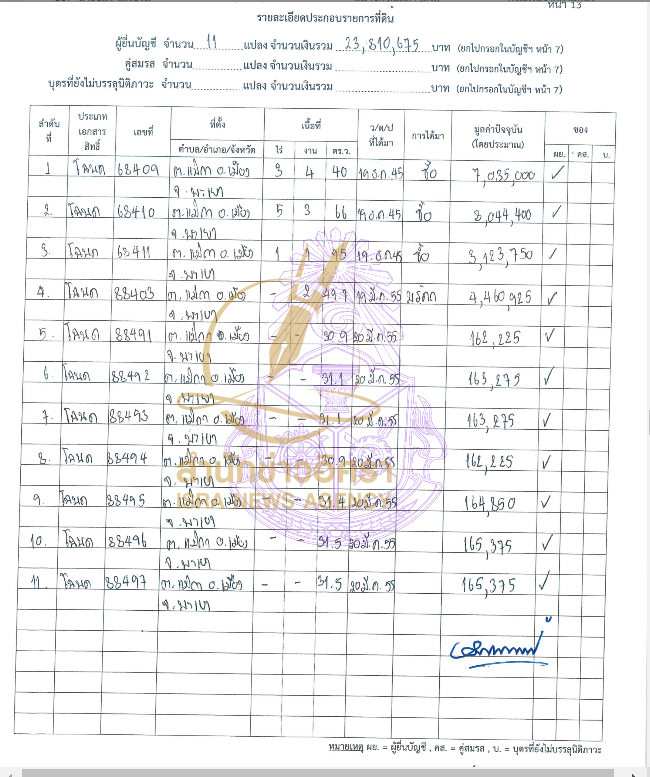 หน้า 13
รายละเอียดประกอบรายการที่ดิน
ผู้ยื่นบัญชี จำนวน 11 แปลง จำนวนเงินรวม 23,810,675 บาท (ยกไปกรอกในบัญชีฯ หน้า 7)
คู่สมรส จำนวน แปลง จำนวนเงินรวม บาท (ยกไปกรอกในบัญชีฯ หน้า 7)
บุตรที่ยังไม่บรรลุนิติภาวะ จำนวน แปลง จำนวนเงินรวม บาท (ยกไปกรอกในบัญชีฯ หน้า 7)
ลำดับที่ ประเภทเอกสารสิทธิ์ เลขที่ ที่ตั้ง เนื้อที่ ว/ด/ป ที่ได้มา การได้มา มูลค่าปัจจุบัน (โดยประมาณ) ของ
ตำบล/อำเภอ/จังหวัด ไร่ งาน ตร.ว. ผย. คส. บ.
1 โฉนด 68409 ต.แม่กา อ.เมือง 3 4 40 19 ธ.ค.45 ซื้อ 7,035,000 ✓
จ.พะเยา
2. โฉนด 68410 ต.แม่กา อ.เมือง 5 3 66 19 ธ.ค.45 ซื้อ 8,044,400 ✓
จ.พะเยา
3. โฉนด 68411 ต.แม่กา อ.เมือง 1 1 95 19 ธ.ค.45 ซื้อ 3,123,750 ✓
จ.พะเยา
4. โฉนด 88403 ต.แม่กา อ.เมือง - 2 49.7 19 มี.ค.55 มรดก 4,460,925 ✓
จ.พะเยา
5. โฉนด 88491 ต.แม่กา อ.เมือง - - 30.9 20 มี.ค.55 162,225 ✓
จ.พะเยา
6. โฉนด 88492 ต.แม่กา อ.เมือง - - 31.1 20 มี.ค.55 163,275 ✓
จ.พะเยา
7. โฉนด 88493 ต.แม่กา อ.เมือง - - 31.1 20 มี.ค.55 163,275 ✓
จ.พะเยา
8. โฉนด 88494 ต.แม่กา อ.เมือง - - 30.9 20 มี.ค.55 162,225 ✓
จ.พะเยา
สำนักข่าวอิศรา
ISRA NEWS AGENCY
9. โฉนด 88495 ต.แม่กา อ.เมือง - - 31.4 20 มี.ค.55 164,850 ✓
จ.พะเยา
10. โฉนด 88496 ต.แม่กา อ.เมือง - - 31.5 20 มี.ค.55 165,375 ✓
จ.พะเยา
11. โฉนด 88497 ต.แม่กา อ.เมือง - - 31.5 20 มี.ค.55 165,375 ✓
จ.พะเยา
หมายเหตุ ผย. = ผู้ยื่นบัญชี , คส. = คู่สมรส , บ. = บุตรที่ยังไม่บรรลุนิติภาวะ